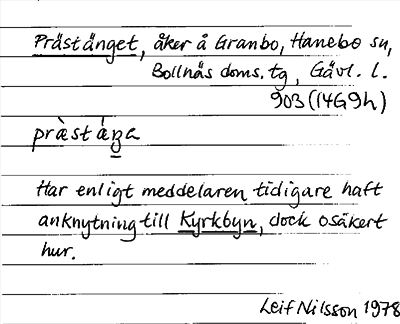 Prästänget, åker å Granbo, Hanebo sn,
Bollnäs doms. tg, Gävl. l.
903 (14G9h)
prὰstáŋa
Har enligt meddelaren tidigare haft
anknytning till Kyrkbyn, dock osäkert
hur.
Leif Nilsson 1978